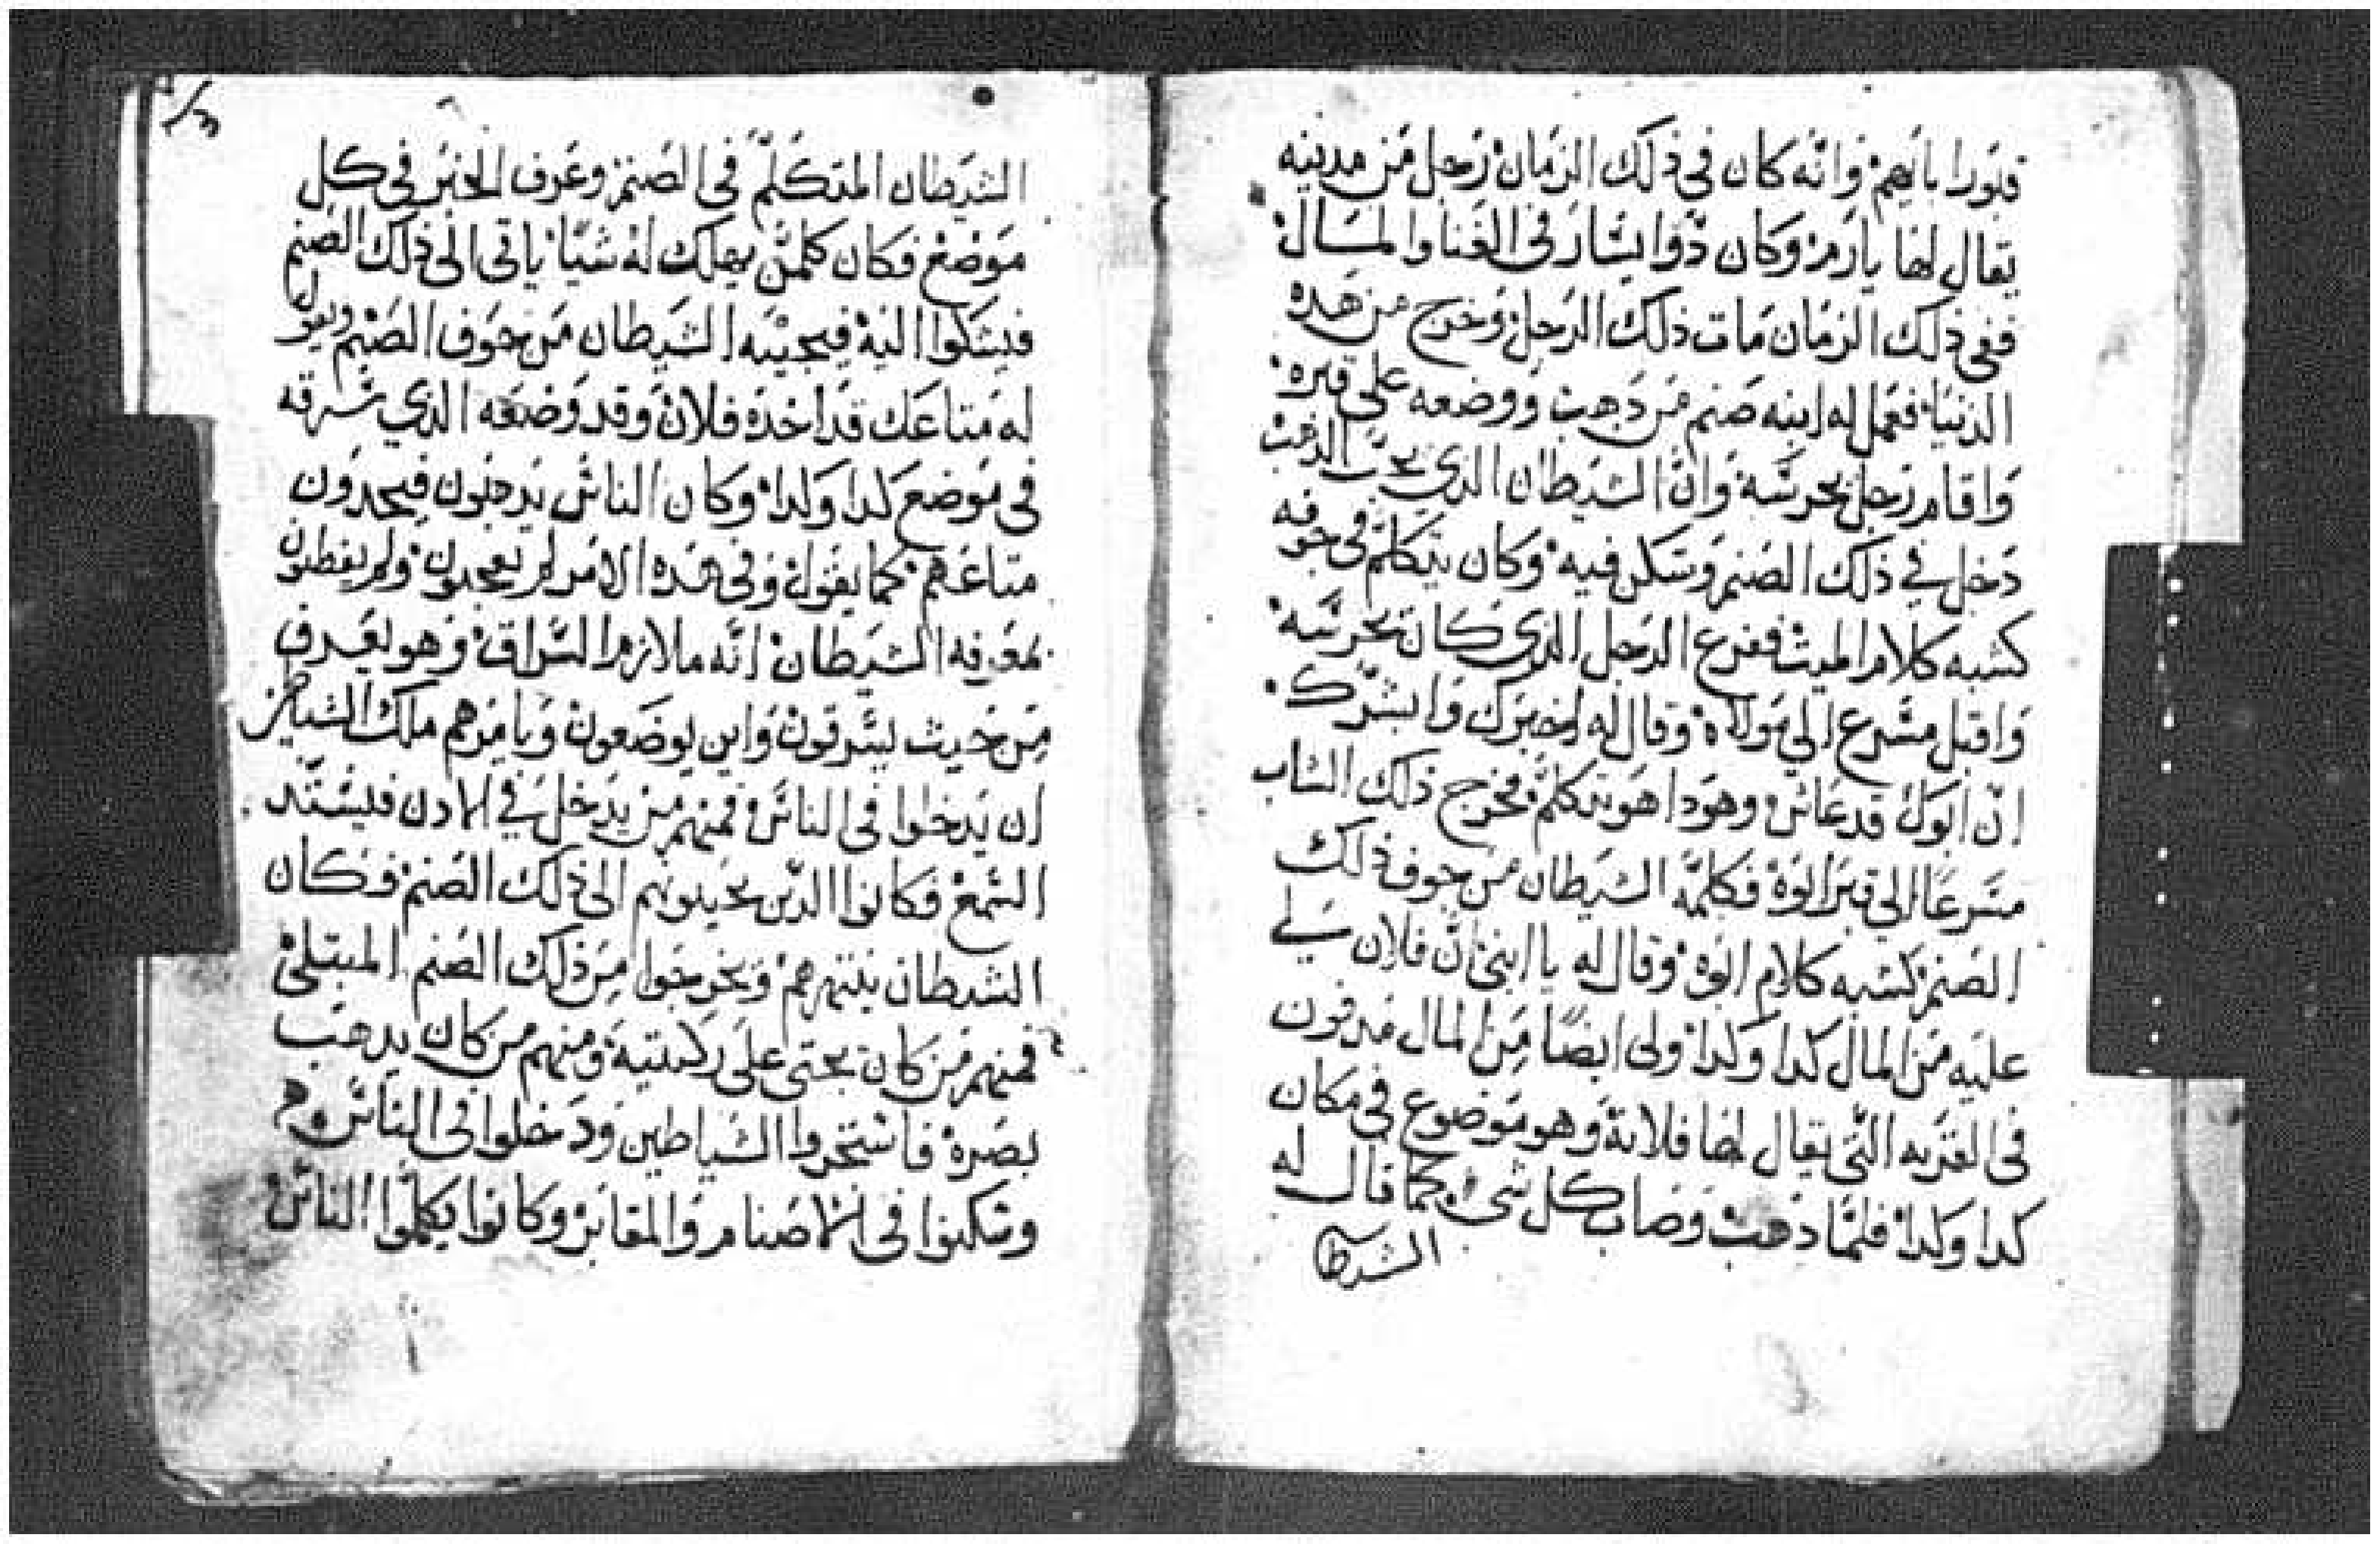 قبورا باىهم وانه كان فى ذلك الزمان رجل من مدينه
يقال لها يارم وكان ذوا يسار فى الغنا والمال
ففى ذلك الزمان مات ذلك الرجل وخرج من هده
الدنيا فعمل له ابنه صنم من دهب ووضعه على قبره
واقام رجل يحرسه وان الشيطان الذي يحب الدهب
دخل في ذلك الصنم وسكن فيه وكان يتكلم فى جوفه
كشبه كلام الميت ففزع الرجل الذي كان يحرسه
واقبل مسرع الي مولاه وقال له اخبرك وابشرك
ان ابوك قد عاش وهودا هو يتكلم فخرج ذلك الشاب
مسرعا الي قبر ابوه فكلمه الشيطان من جوف ذلك
الصنم كشبه كلام ابوه وقال له يا ابني ان فلان لي
عليه من المال كدا وكدا ولى ايضا من المال مدفون
فى القريه التى يقال لها فلانة وهو موضوع في مكان
كدا وكدا فلما دهب وصاب كل شي كما قال له
الشيطا
الشيطان المتكلم فى الصنم وعرف الخبر في كل
موضع فكان كلمن يهلك له شيا ياتى الى ذلك الصنم
فيشكوا اليه فيجيبه الشيطان من جوف الصنم ويقول
له متاعك قد اخده فلان وقد وضعه الذي سرقه
فى موضع كدا وكدا وكان الناس يدهبون فيجدون
متاعهم كما يقول وفى هده الامر يعجبون ولم يفطنون
لمعرفه الشيطان انه ملازم السراق وهو يعرف
من حيث يسرقون واين يوضعون ويامرهم ملك الشياطين
ان يدخلوا فى الناس فمنهم من يدخل في الادن فيستد
السمع فكانوا الدين يجيبونهم الى ذلك الصنم فكان
الشيطان ينتهرهم ويخرجوا من ذلك الصنم المبتلى
فمنهم من كان يجتى على ركبتيه ومنهم من كان يدهب
بصره فاستخروا الشياطين ودخلوا فى الناس وهم
وسكنوا فى الاصنام والمقابر وكانوا يكلموا الناس